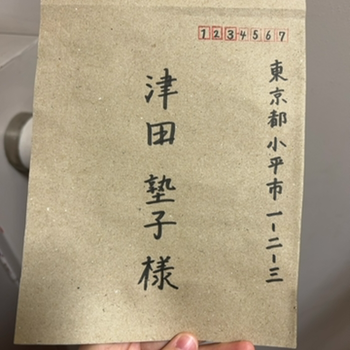 1234567
東京都小平市一-二-三
津田塾子様